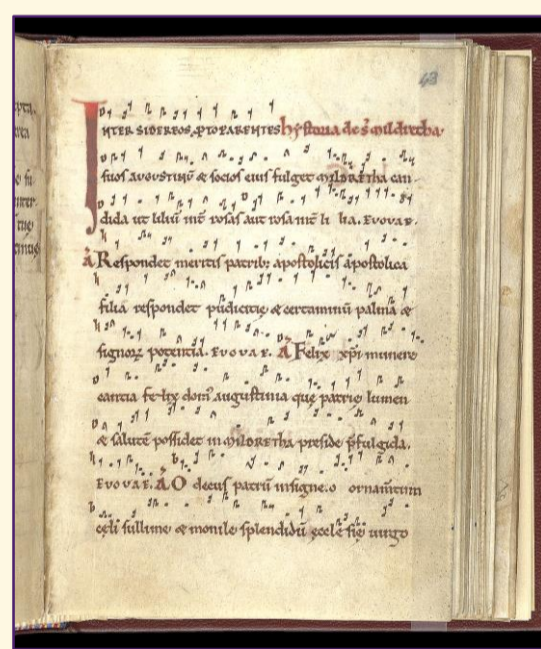 43
INTER SIDEREOS, PTOPARENTES hystoria de s mildretha.
suos AUGUSTINU & socios eius fulget MILDRETHA can
dida ut liliu int rosas aut rosa int li lia. EVOVAE.
A Respondet meritis patrib; apostolicis apostolica
filia respondet pudicitie & certaminu palma &
signoꝝ potentia. EVOVAE. A Felix xpi munere
cantia felix dom augustinia que patrie lumen
& salute possidet in MILDRETHA preside pfulgida.
EVOVAE. A O decus patru insigne. o ornamtum
celi sullime & monile splendidu eccle sie uirgo